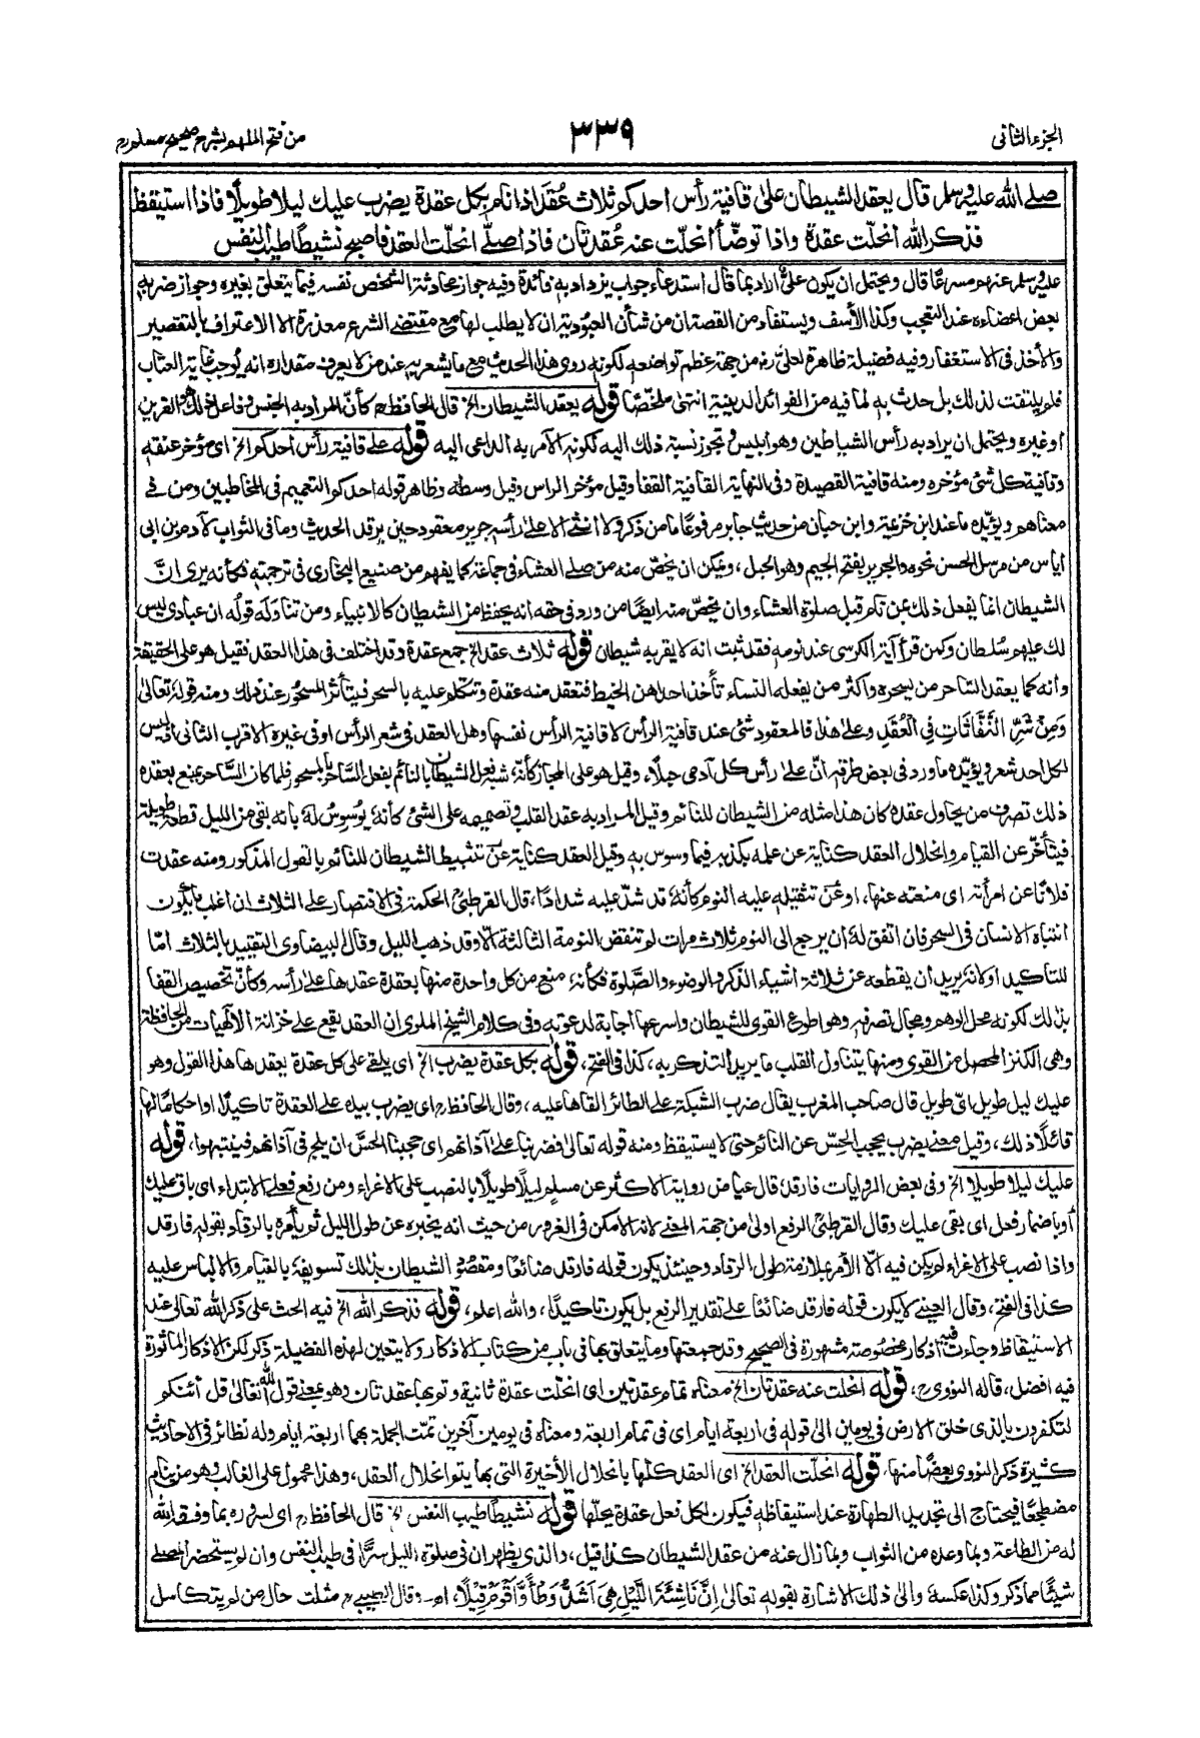 الجزء الثانی
٣٣٩
من فتح الملهم بشرح صحیح مسلم
صلے الله علیه وسلم قال یعقد الشیطان علیٰ قافیة رأس احدکم ثلاث عُقَد اذا نام بکل عقدة یضرب علیك لیلا طویلًا فاذا استیقظ
فذکر الله انحلّت عقدة واذا توضّأ انحلّت عنه عُقدتان فاذا صلّٰی انحلّت العقد فاصبح نشیطًا طیب النفس
علیه وسلم عنهم مسرعًا قال ویحتمل ان یکون علیٌ اراد بما قال استدعاء جواب یزداد به فائدة وفیه جواز محادثة الشخص نفسه فیما یتعلق بغیره وجواز ضربه
بعض اعضاءه عند التعجب وکذا الأسف ویستفاد من القصة ان من شأن العبودیة ان لا یطلب لها مع مقتضے الشرع معذرة الا الاعتراف بالتقصیر
والأخذ فی الاستغفار وفیه فضیلة ظاهرة لعلیّ رض من جهة عظم تواضعه لکونه روی هذا الحدیث مع ما یشعر به عند من لا یعرف مقداره انه یُوجب غایة العتاب
فلم یلتفت لذلك بل حدث به لما فیه من الفوائد الدینیة انتهٰی ملخصًا قوله یعقد الشیطان الخ قال الحافظ رح کأنّ المراد به الجنس وفاعل ذلك هو القرین
او غیره ویحتمل ان یراد به رأس الشیاطین وهو ابلیس وتجوز نسبة ذلك الیه لکونه الآمر به الداعی الیه قوله علے قافیة رأس احدکم الخ ای مؤخر عنقه
وقافیة کل شئ مؤخره ومنه قافیة القصیدة وفی النهایة القافیة القفا وقیل مؤخر الراس وقیل وسطه وظاهر قوله احدکم التعمیم فی المخاطبین ومن فے
معناهم ویؤیّده ما عند ابن خزیمة وابن حبان من حدیث جابر مرفوعًا ما من ذکر ولا انثٰی الا علیٰ رأسه جریر معقود حین یرقد الحدیث وما فی الثواب لآدم بن ابی
ایاس من مرسل الحسن نحوه والجریر بفتح الجیم وهو الحبل، ویمکن ان یخصّ منه من صلے العشاء فی جماعة کما یفهم من صنیع البخاری فی ترجمته فکأنه یری انّ
الشیطان انما یفعل ذلك بمن نام قبل صلوة العشاء وان یخصّ منه ایضًا من ورد فی حقه انه یحفظ من الشیطان کالانبیاء ومن تناوله قولُه ان عبادی لیس
لك علیهم سُلطان وکمن قرأ آیة الکرسی عند نومه فقد ثبت انه لا یقربه شیطان قوله ثلاث عقد الخ جمع عقدة وقد اختلف فی هذا العقد فقیل هو علی الحقیقة
وأنه کما یعقد الساحر من یسحره واکثر من یفعله النساء تأخذ احداهن الخیط فتعقد منه عقدة وتتکلم علیه بالسحر فیتأثر المسحُور عند ذلك ومنه قوله تعالیٰ
وَمِنْ شَرِّ النَّفّٰثٰتِ فِی الْعُقَدِ وعلے هذا فالمعقود شئی عند قافیة الرأس لا قافیة الرأس نفسها وهل العقد فی شعر الرأس او فی غیره الاقرب الثانی اذ لیس
لکل احد شعر ویؤیّده ما ورد فی بعض طرقه انّ علیٰ رأس کل آدمی حبلًا، وقیل هو علی المجاز کأنهٗ شبه فعل الشیطان بالنائم بفعل السَّاحر بالمسحور فلما کان السَّاحر یمنع بعقده
ذلك تصرف من یحاول عقده کان هذا مثله من الشیطان للنائم وقیل المراد به عقد القلب وتصمیمه علی الشئ کأنهٗ یُوسوِس لهٗ بأنه بقی من اللیل قطعة طویلة
فیتأخّر عن القیام وانحلال العقد کنایة عن علمه بکذبه فیما وسوس به وقیل العقد کنایة عن تثبیط الشیطان للنائم بالقول المذکور ومنه عقدت
فلانًا عن امرأته ای منعته عنها، او عن تثقیله علیه النوم کأنهٗ قد شدّ علیه شدادًا، قال القرطبیُّ الحکمة فی الاقتصار علے الثلاث ان اغلب ما یکون
انتباه الانسان فی السحر فان اتفق لهٗ ان یرجع الی النوم ثلاث مرات لم تنقض النومة الثالثة الّا وقد ذهب اللیل وقال البیضاوی التقیید بالثلاث امّا
للتأکید او لانه یرید أن یقطعه عن ثلاثة اشیاء الذکر والوضوء والصَّلوة فکأنهٗ منع من کل واحدة منها بعقدة عقدها علے رأسه وکأنّ تخصیص القفا
بذلك لکونه محل الوهم ومجال تصرفه وهو اطوع القوی للشیطان واسرعها اجابة لدعوته وفی کلام الشیخ الملوی ان العقد یقع علے خزانة الالٰهیات من الحافظة
وهی الکنز المحصل من القوی ومنها یتناول القلب ما یرید التذکر به، کذا فی الفتح، قوله بکل عقدة یضرب الخ ای یلقی علی کل عقدة یعقدها هذا القول وهو
علیك لیل طویل الخ طویل قال صاحب المغرب یقال ضرب الشبکة علے الطائر القاها علیه، وقال الحافظ رح ای یضرب بیده علے العقدة تاکیدًا او احکامًا لها
قائلًا ذلك، وقیل معنے یضرب یحجب الحسّ عن النائم حتٰی لا یستیقظ ومنه قوله تعالیٰ فضربنا علےٰ آذانهم ای حجبنا الحسّ ان یلج فی آذانهم فینتبهوا، قوله
علیك لیلا طویلا الخ وفی بعض الروایات فارقد قال عیاض روایة الاکثر عن مسلم لیلًا طویلًا بالنصب علی الاغراء ومن رفع فعلے الابتداء ای باق علیك
أو باضمار فعل ای بقی علیك وقال القرطبیُّ الرفع اولیٰ من جهة المعنے لانه الامکن فی الغرور من حیث انه یخبره عن طول اللیل ثم یأمره بالرقاد بقوله فارقد
واذا نصب علی الاغراء لم یکن فیه الّا الأمر بملازمة طول الرقاد وحینئذ یکون قوله فارقد ضائعًا ومقصُود الشیطان بذلك تسویفه بالقیام والالباس علیه
کذا فی الفتح، وقال العینے لا یکون قوله فارقد ضائعًا علے تقدیر الرفع بل یکون تاکیدًا، والله اعلم، قوله فذکر الله الخ فیه الحث علی ذکر الله تعالیٰ عند
الاستیقاظ وجاءت فیه اذکار مخصوصة مشهورة فی الصحیح وقد جمعتها وما یتعلق بها فی باب من کتاب الاذکار ولا یتعین لهذه الفضیلة ذکر لکن الاذکار الماثورة
فیه افضل، قاله النووی رح، قوله انحلت عنه عقدتان الخ معناه تمام عقدتین ای انحلت عقدة ثانیة وتم بها عقدتان وهو بمعنے قول الله تعالیٰ قل أئنکم
لتکفرون بالذی خلق الارض فی یومین الی قوله فی اربعة ایام ای فی تمام اربعة ومعناه فی یومین آخرین تمّت الجملة بهما اربعة ایام وله نظائر فی الاحادیث
کثیرة ذکر النووی بعضًا منها، قوله انحلّت العقد الخ ای العقد کلها بانحلال الأخیرة التی بها یتم انحلال العقد، وهذا محمول علی الغالب وهو من ینام
مضطجعًا فیحتاج الی تجدید الطهارة عند استیقاظه فیکون لکل فعل عقدة یحلّها قوله نشیطًا طیب النفس الخ قال الحافظ رح ای لسروره بما وفقه الله
له من الطاعة وبما وعده من الثواب وبما زال عنه من عقد الشیطان کذا قیل، والذی یظهر ان فی صلوة اللیل سرًّا فی طیب النفس وان لم یستحضر المصلے
شیئًا مما ذکر وکذا عکسه والیٰ ذلك الاشارة بقوله تعالیٰ اِنَّ نَاشِئَةَ الَّیْلِ هِیَ اَشَدُّ وَطْأً وَّاَقْوَمُ قِیْلًا، اھ قال الطیبے رح مثلت حال من لم یتکاسل